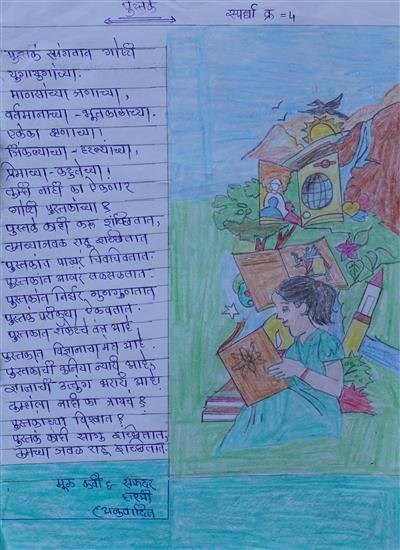 पुस्तकं
स्पर्धा क्र = 4
पुस्तकं सांगतात गोष्टी
युगायुगांच्या.
माणसांच्या जगाच्या,
वर्तमानाच्या - भूतकाळाच्या.
एकेका क्षणाच्या!
जिंकल्याच्या - हरल्याच्या,
प्रेमाच्या - कटुतेच्या!
तुम्ही नाही का ऐकणार
गोष्टी पुस्तकांच्या?
पुस्तकं काही करू इच्छितात,
तुमच्याजवळ राहू इच्छितात
पुस्तकांत पाखरं चिवचिवतात.
पुस्तकांत आखरं सळसळतात
पुस्तकांत निर्झर गुणगुणतात
पुस्तकं परीकथा ऐकवतात.
पुस्तकात रॉकेटचे तंत्र आहे
पुस्तकात विज्ञानाचा मंत्र आहे.
पुस्तकांची दुनिया न्यारी आहे
ज्ञानाची उत्तुंग भरारी आहे.
तुम्हांला नाही का जायचं?
पुस्तकांच्या विश्वात?
पुस्तकं काही सांगू इच्छितात,
तुमच्या जवळ राहू इच्छितात.
मूळ कवी : सफदर
हाश्मी
(अनुवादित)